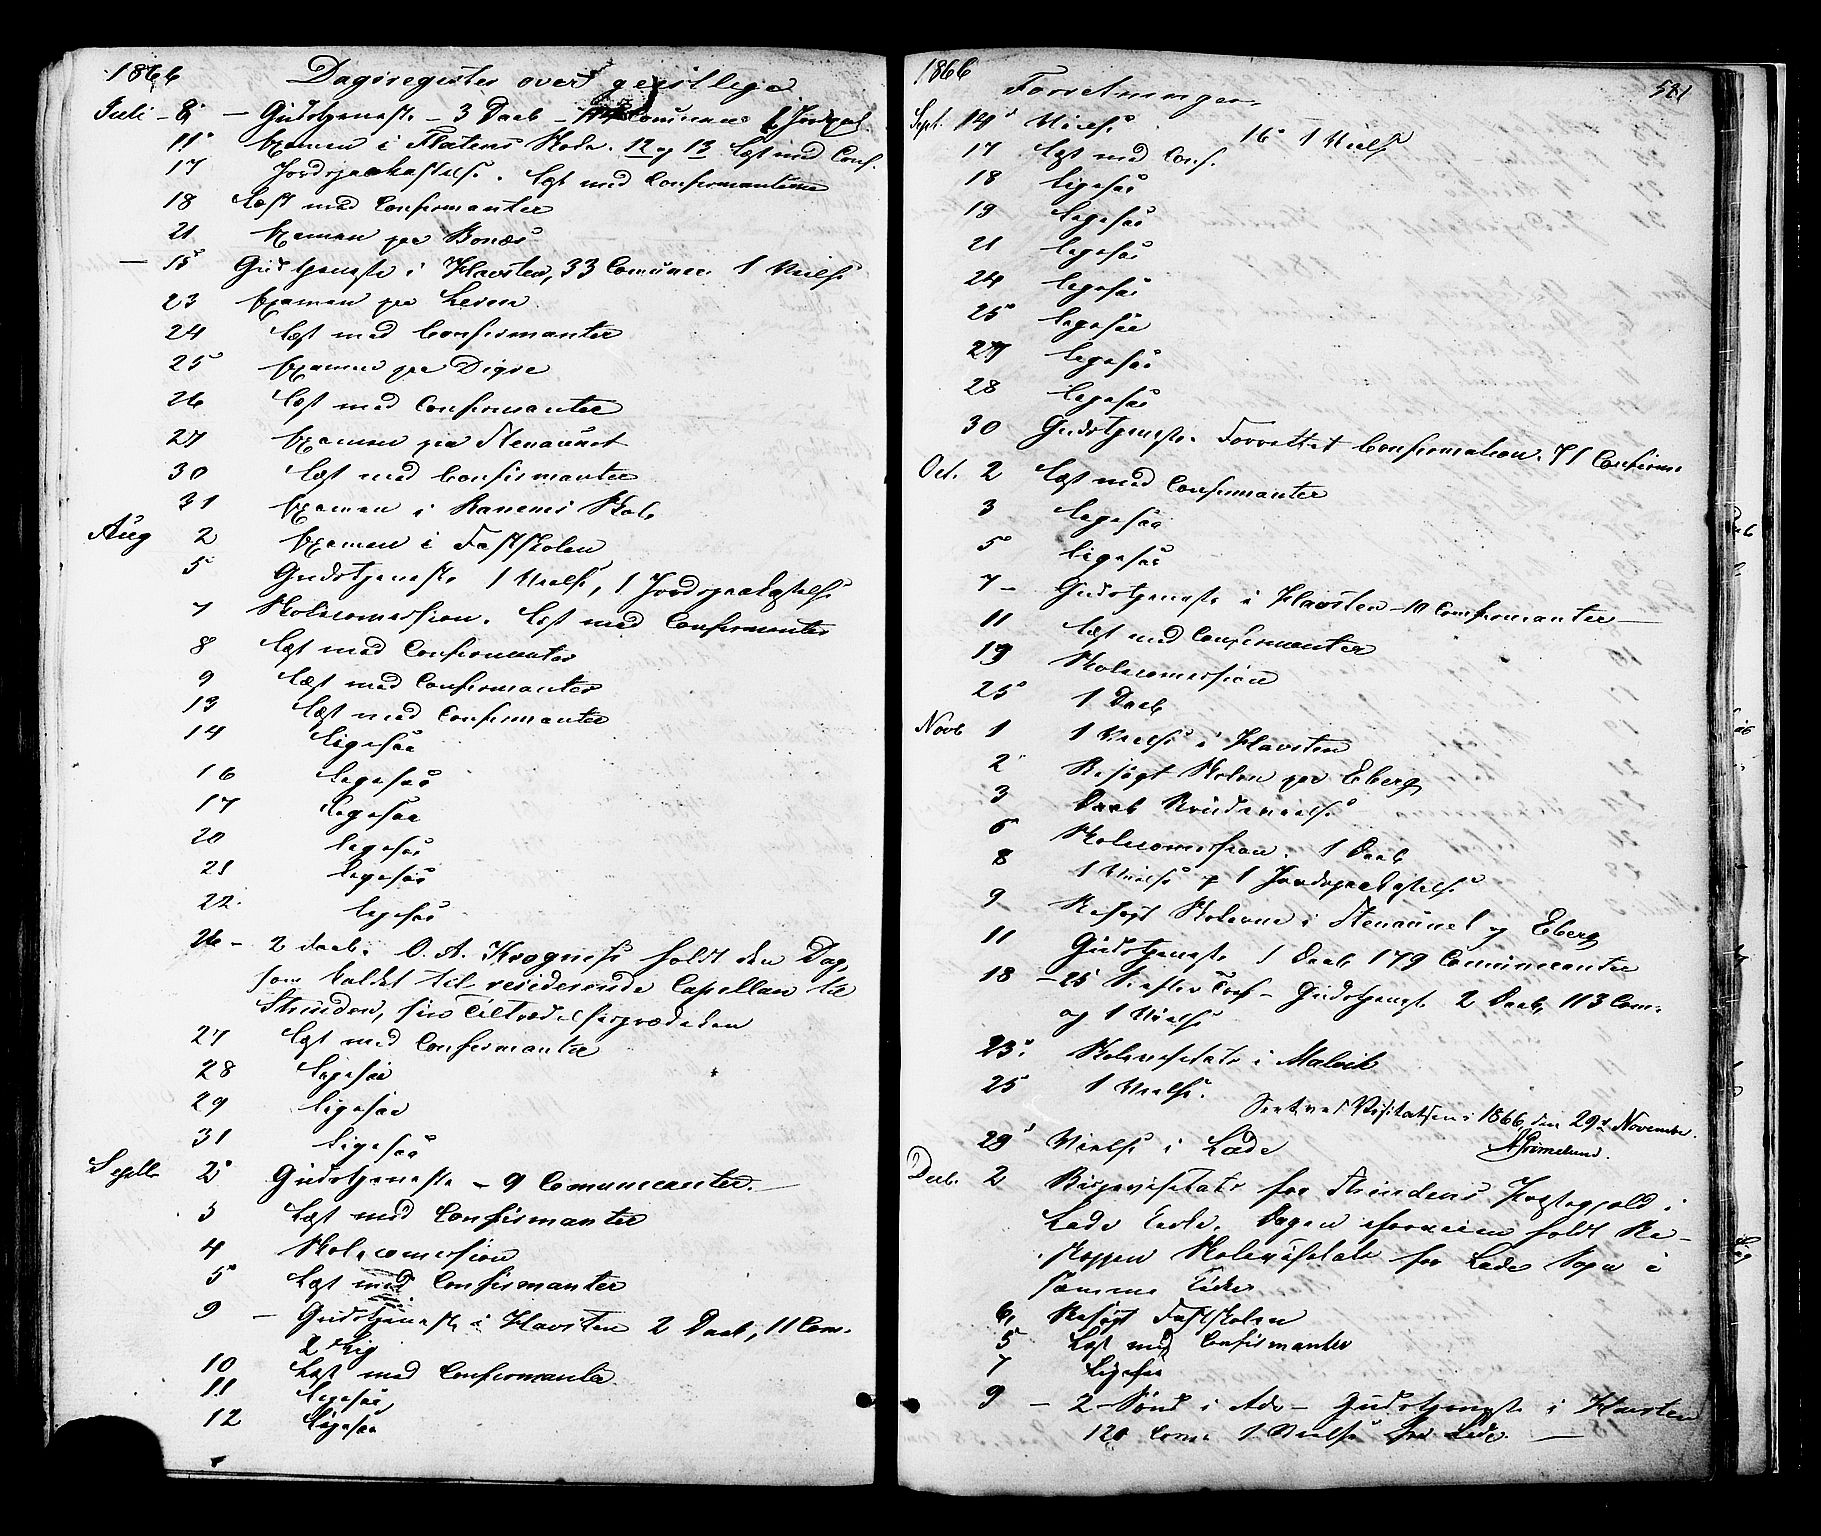 1866 Dagsregister over geistlige
Juli 8 – Gudstjeneste – 3 Daab – Comunican 1 Jordpaa
11 Examen i Skole. 12 og 13 Læst med Conf.
17 Jordspaakastelse. Læst med Confirmanterne
18 Læst med Confirmanter
21 Examen paa Bonæs
– 15 Gudstjeneste i Havsten, 33 Comunic. 1 Vielse
23 Examen paa Leren
24 Læst med Confirmanter
25 Examen paa Digre
26 Læst med Confirmanter
27 Examen paa Stenaunet
30 Læst med Confirmanter
31 Examen i Ranems Skole
Aug 2 Examen i Fastskolen
5 Gudstjeneste 1 Vielse, 1 Jordspaakastelse
7 Skolecomission. Læst med Confirmanter
8 Læst med Confirmanter
9 Læst med Confirmanter
13 Læst med Confirmanter
14 Ligesaa
16 Ligesaa
17 Ligesaa
20 Ligesaa
21 Ligesaa
22 Ligesaa
26 – 2 Daab. O. A. Krogness holdt den Dag,
som kaldet til residerende Capellan til
Strinden, sin Tiltrædelsesprædiken
27 Læst med Confirmanter
28 Ligesaa
29 Ligesaa
31 Ligesaa
Septb 2 Gudstjeneste – 9 Comunicanter. –
3 Læst med Confirmanter
4 Skolecomission
5 Læst med Confirmanter
9 – Gudstjeneste i Havsten 2 Daab, 11 Com.
2 Lig
10 Læst med Confirmanter
11 Ligesaa
12 Ligesaa
1866 Forretninger 581
Sept. 14 Vielse 16 1 Vielse
17 Læst med Conf.
18 Ligesaa
19 Ligesaa
21 Ligesaa
24 Ligesaa
25 Ligesaa
27 Ligesaa
28 Ligesaa
30 Gudstjeneste. Forrettet Confirmation. 71 Confirm
Oct. 2 Læst med Confirmanter
3 Ligesaa
5 Ligesaa
7 – Gudstjeneste i Havsten – 10 Confirmanter –
11 Læst med Confirmanter
19 Skolecomission
25 1 Daab
Novb 1 1 Vielse i Havsten
2 Besøgt Skolen paa Eberg
3 Daab
6 Skolecomission. 1 Daab
8 1 Vielse og 1 Jordspaakastelse
9 Besøgt Skolerne i Stenaunet og Eberg
11 Gudstjeneste 1 Daab 179 Comunicanter
18 – 25 S. efter Tref – Gudstjeneste 2 Daab, 113 Com.
og 1 Vielse
23 Skolevisitats i Malvik
25 1 Vielse.
Visitatsen 1866 den 29d November.
Grimelund.
29 Vielse i Lade
Decb. 2 Bispevisitats for Strindens Præstegjeld i
Lade Kirke. Dagen forveien holdt Bi-
skoppen Skolevisitats for Lade Sogn i
samme Kirke
6, Besøgt Fastskolen
5 Læst med Confirmanter
7 Ligesaa
9 – 2 Sønd i Adv – Gudstjeneste i Havsten
120 Com. 1 Vielse fra Lade. –